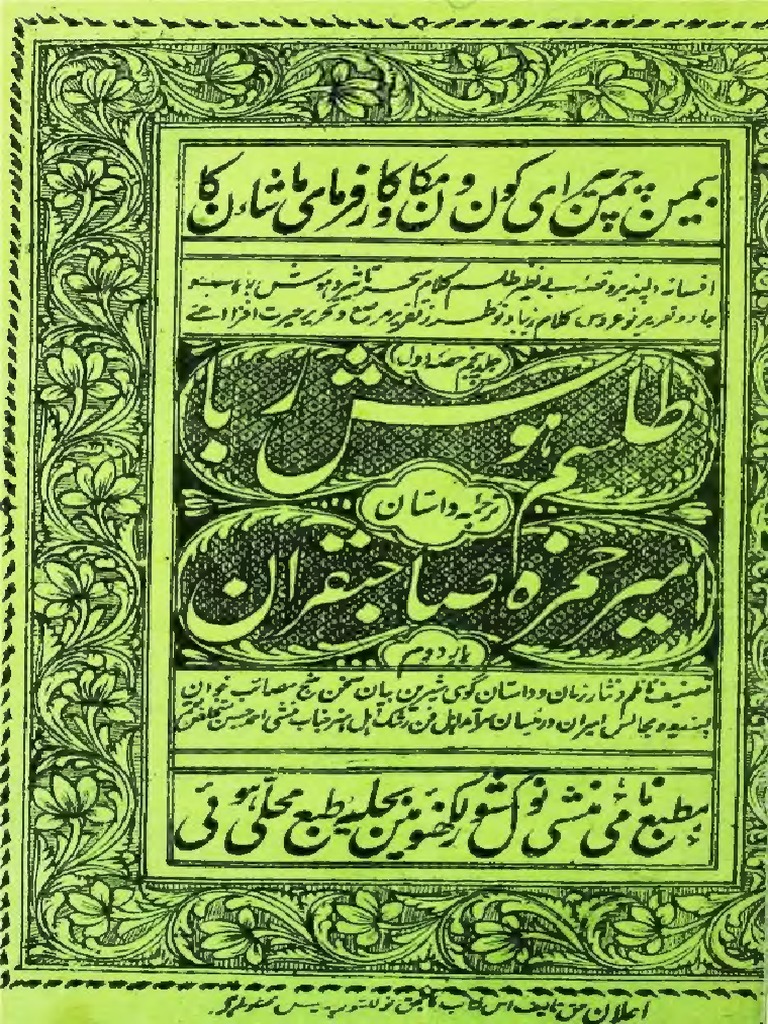 بیمن چمن پیرای کون و مکان و کارفرمای ماشاءن کا
افسانہ دلپذیر و قصۂ بے نظیر طلسم کلام سحر تاثیر و ہوش
جادو تقریر نو عروس کلام زیبا و نو طرز تقریر مرصع و تحریر حیرت افزا اعنے
جلد پنجم حصہ اول
طلسم ہوش ربا
ترجمہ داستان
امیر حمزہ صاحبقران
بار دوم
مصنفہ ناظم و نثار زمان و داستان گوی شیرین بیان سخن سنج مصائب خوان
و مجالس امیران و رئیسان سرآمد اہل فن رشک اہل ہنر جناب منشی احمد حسین
بمطبع نامی منشی نولکشور لکھنؤ مین بحلیۂ طبع محلی ہوئی
اعلان حق تالیف اس کتاب کا بحق نولکشور پریس محفوظ ہے